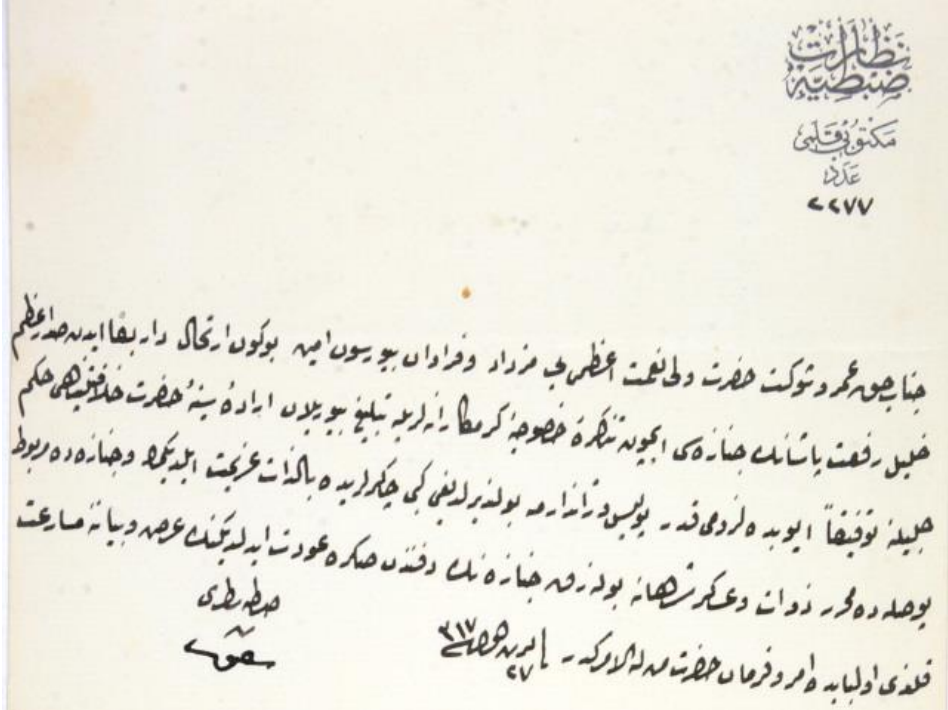 نظارت
ضبطیه
مکتوبی قلمی
عدد
٢٢٧٧
جناب حق عمر و شوکت حضرت ولی نعمت اعظمی بی مزداد و فراوان بیورسون امین بوکون ارتحال دار بقا ایدن صدر اعظم
خلیل رفعت پاشانك جنازه‌سی ایچون تذکرهٔ خصوصیهٔ کرمکارانه‌لریله تبلیغ بیوریلان ارادهٔ سنیهٔ حضرت خلافتپناهی حکم
جلیلنه توفیقاً ایوبده لزومی قدر پولیس و ژاندارمه بولندیرلدیغی کبی چاکرلریده بالذات عزیمت ایلدیکم و جنازه‌ده مربوط
پوصله‌ده محرر ذوات و عسکر شاهانه بولنه‌رق جنازه‌نك دفنندن صکره عودت ایدلدیکنك عرض و بیاننه مسارعت
قلندی اولبابده امر و فرمان حضرت من له الامرکدر ٣١٧ ٢٧
ضبطیه ناظری